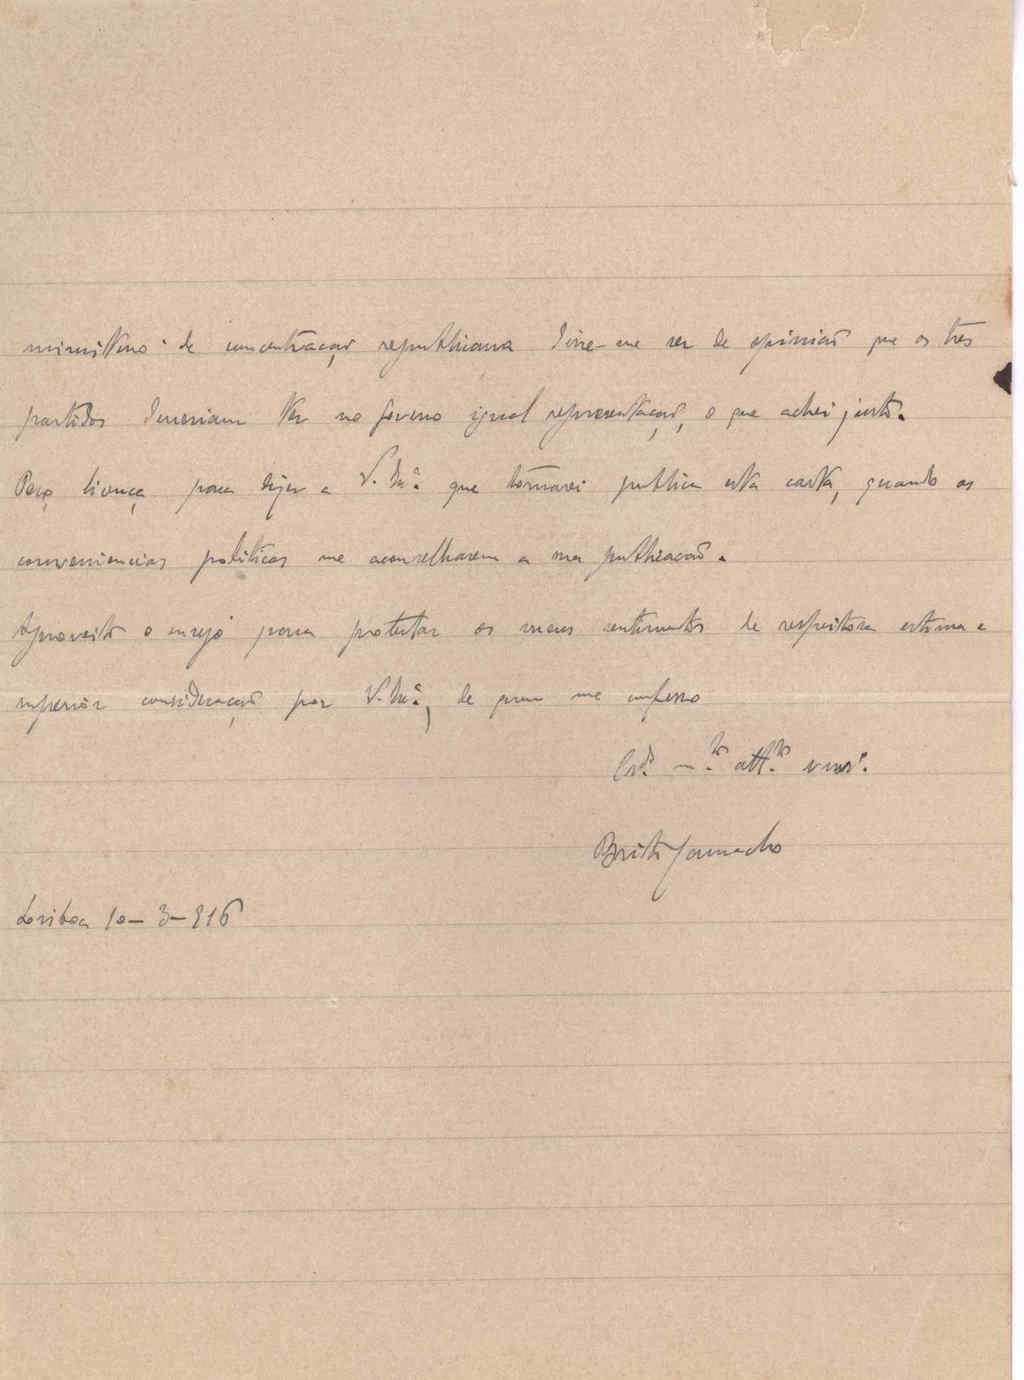 ministerio de concentração republicana disse-me ser de opinião que os tres
partidos deveriam ter no governo igual representação, o que achei justo.
Peço licença para dizer a V. Ex.ª que tornarei publica esta carta, quando as
conveniencias politicas me aconselharem a sua publicação.
Aproveito o ensejo para protestar os meus sentimentos de respeitosa estima e
superior consideração por V. Ex.ª, de quem me confesso
Cr.do m.to att.to
Brito Camacho
Lisboa 10-3-916